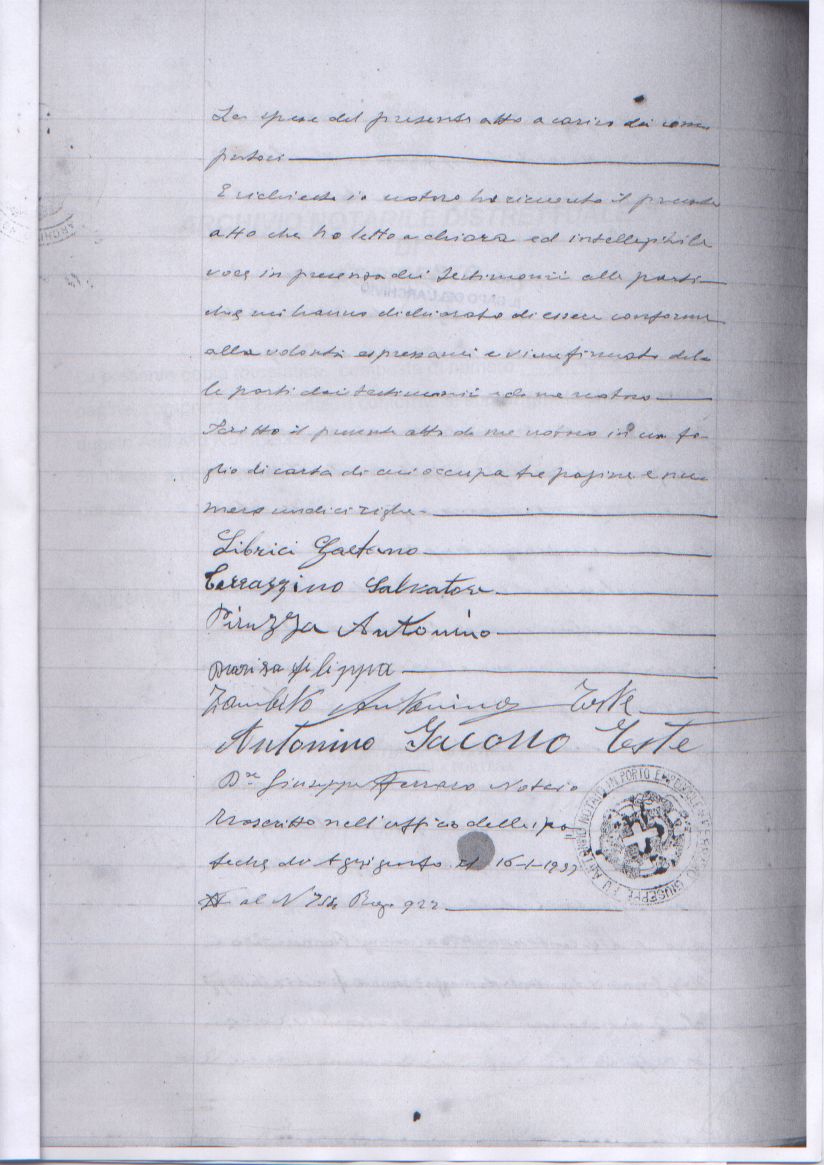 Le spese del presente atto a carico dei com
pratori
E richiesto io notaro ho ricevuto il presente
atto che ho letto a chiara ed intellegibile
voce in presenza dei testimonii alle parti
che mi hanno dichiarato di essere conforme
alla volontà espressami e viene firmato dal
le parti dai testimonii e da me notaro
Scritto il presente atto da me notaro in un fo-
glio di carta di cui occupa tre pagine e nu
mero undici righe -
Librici Gaetano
Terrazzino Salvatore
Piruzza Antonino
Filippa
Zambito Antonino Teste
Antonino Iacono Teste
Dr Giuseppe Ferraro Notaio
Trascritto nell'officio delle ipo
teche di Agrigento il 16-1-1937
al N 754 Reg
ARCHIVIO NOTARILE DISTRETTUALE
DI
IL CAPO DELL'ARCHIVIO
NOTAIO IN PORTO EMPEDOCLE
GIUSEPPE FU ANTONINO